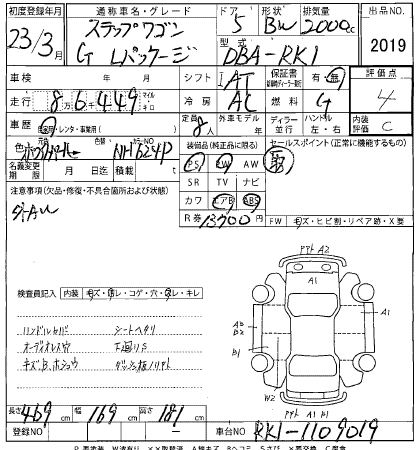 初度登録年月 通称車名・グレード ドア 形状 排気量 出品NO
23年3月 ステップワゴン G Lパッケージ 5 BW 2000cc 2019
型式 DBA-RK1
車検 年 月 シフト IAT 保証書 有・無 評価点
走行 86,449 マイル キロ 冷房 AC 燃料 G 4
車歴 自家用・レンタ・事業用( ) 定員 8人 外車モデル 年 ディーラー 並行 ハンドル 左・右 内装評価 C
色 色替 カラーNO NH624P 装備品(純正品に限る) セールスポイント(正常に機能するもの)
名義変更期限 月 日迄 積載 t PS PW AW
SR TV ナビ
注意事項(欠品・修復・不具合箇所および状態) カワ エアB ABS
R券 13700円 FW キズ・ヒビ割・リペア跡・X要
検査員記入 内装 キズ・汚レ・コゲ・穴・スレ・キレ
アトA2
A1
AB B2 A1
B1
W2
ハンドルカバー シートヘタリ
オーディオレス穴 下廻りS
キズB、ホショウ
アトA1 B1
長さ 469cm 幅 169cm 高さ 181cm
登録NO 車台NO RK1-1109019